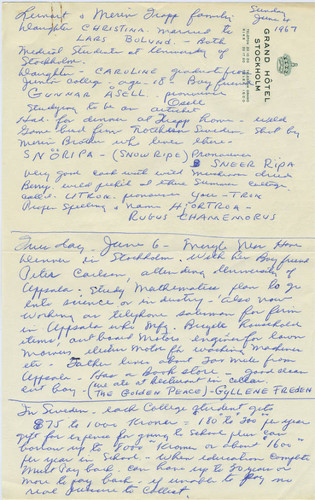 Lennart & Merin Trapp family
Sunday
June 4
1967
GRAND HÔTEL
STOCKHOLM
Daughter CHRISTINA. Married to
LARS BOLUND. - Both
Medical Students at University of
Stockholm.
Daughter - CAROLINE graduate from
Junior College - age - 18 - Boy friend
GUNNAR ASELL. pronounce
Osell
Studying to be an artist
Had for dinner at Trapp home - wild
Game bird from Northern Sweden. Shot by
Merin Brother who lives there -
SNÖRIPA - (SNOW RIPE) Pronounce
SNEER RIPA
very good and with wild Mushroom dried
Berry wild picked at there Summer Cottage
called - UTRON. pronounce You - TRON
Proper Spelling & name HJORTRON -
RUBUS CHAMEMORUS
Tuesday - June 6 -
in Stockholm. With her Boy friend
Peter Carlson, attending University of
Uppsala. Study Mathematics plan to go
into science or industry - also now
working as telephone salesman for firm
in Uppsala who Mfg. Bicycle household
items, out board Motor engines for lawn
Mowers, electric Motor for washing Machines
etc - Father lives about 200 mile from
Uppsala - has a Book store - good clean
cut boy - (We ate at Restaurant in cellar
(THE GOLDEN PEACE) - GYLLENE FREDEN
In Sweden. each College Student gets
$175 to 1000 Kroner = 180 to 200 per year
gift for expense for going to school plus can
borrow up to 8000 - Kroner or about "1600"
per year for School - When education complete
Must Pay back. can have up to 20 year or
more to pay back - if unable to pay no
real pressure to collect.